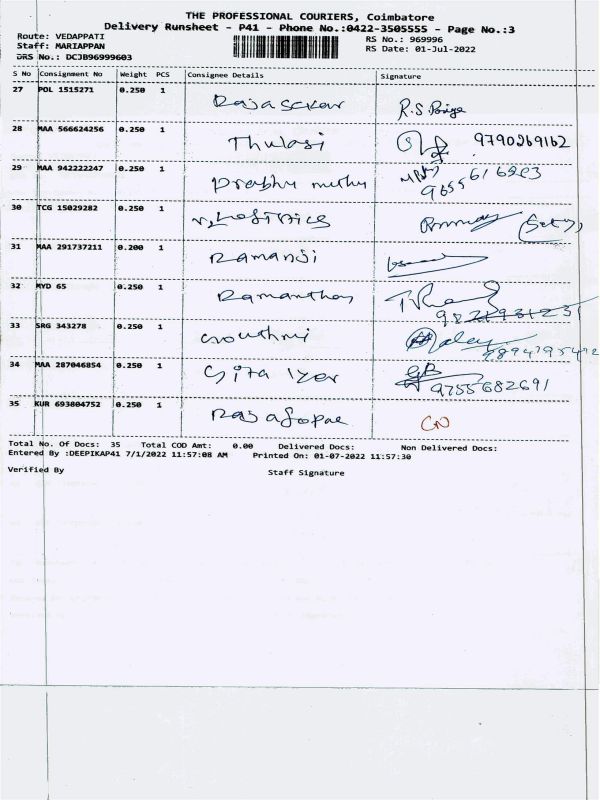 THE PROFESSIONAL COURIERS, Coimbatore
Delivery Runsheet - P41 - Phone No.:0422-3505555 - Page No.:3
Route: VEDAPPATI RS No.: 969996
Staff: MARIAPPAN RS Date: 01-Jul-2022
DRS No.: DCJB96999603
S No Consignment No Weight PCS Consignee Details Signature
27 POL 1515271 0.250 1 Rajasekar R.S. Priya
28 MAA 566624256 0.250 1 Thulasi 9790269162
29 MAA 942222247 0.250 1 Prabhu muthu
30 TCG 15029282 0.250 1
31 MAA 291737211 0.200 1 Ramanji
32 MYD 65 0.250 1 Ramanthan
33 SRG 343278 0.250 1
34 MAA 287046854 0.250 1 Gita Iyer 9755682691
35 KUR 693804752 0.250 1 Rajagopal CN
Total No. Of Docs: 35 Total COD Amt: 0.00 Delivered Docs: Non Delivered Docs:
Entered By :DEEPIKAP41 7/1/2022 11:57:08 AM Printed On: 01-07-2022 11:57:30
Verified By Staff Signature